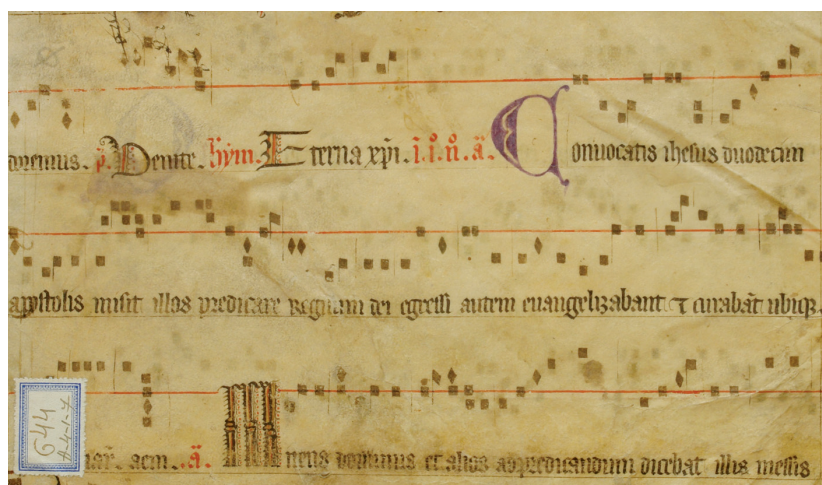 oremus. p̄. Venite. hym̄. Eterna xp̄i. i. i. n̊. ā. Conuocatis ihesus duodecim
apostolis misit illos predicare regnum dei egressi autem euangelizabant ⁊ curabāt ubiqȝ.
aeuia. ā. Mittens dominus et alios ad predicandum dicebat illis messis
644